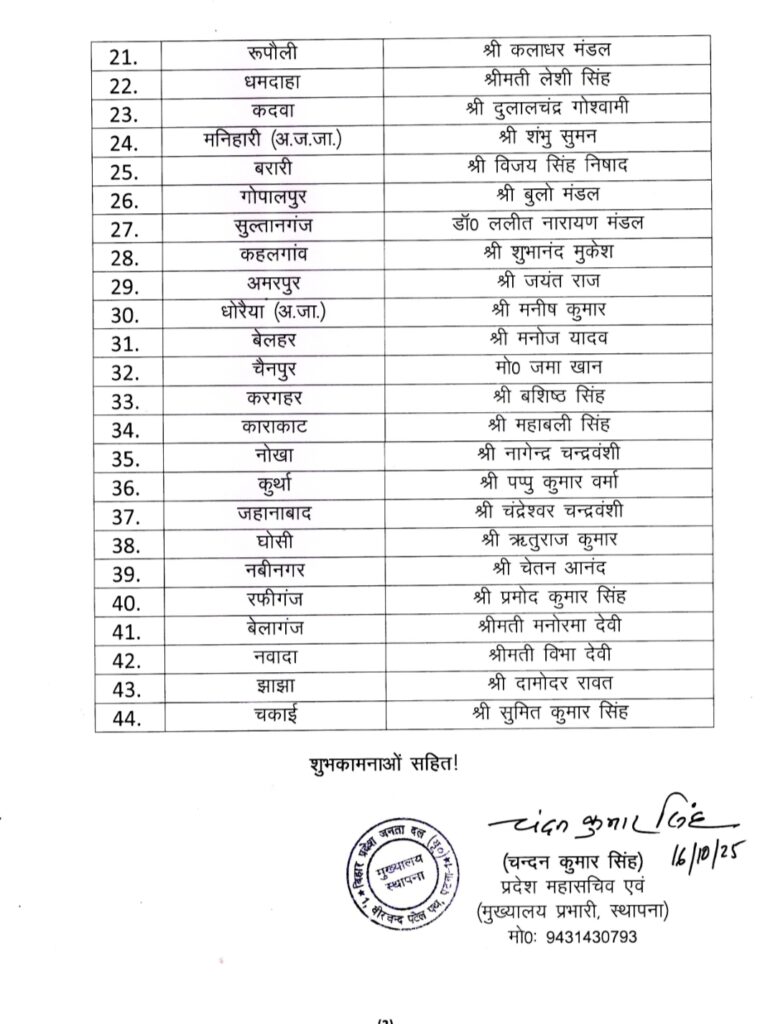 21. रूपौली श्री कलाधर मंडल
22. धमदाहा श्रीमती लेशी सिंह
23. कदवा श्री दुलालचंद्र गोश्वामी
24. मनिहारी (अ.ज.जा.) श्री शंभु सुमन
25. बरारी श्री विजय सिंह निषाद
26. गोपालपुर श्री बुलो मंडल
27. सुल्तानगंज डॉ0 ललीत नारायण मंडल
28. कहलगांव श्री शुभानंद मुकेश
29. अमरपुर श्री जयंत राज
30. धोरैया (अ.जा.) श्री मनीष कुमार
31. बेलहर श्री मनोज यादव
32. चैनपुर मो0 जमा खान
33. करगहर श्री बशिष्ठ सिंह
34. काराकाट श्री महाबली सिंह
35. नोखा श्री नागेन्द्र चन्द्रवंशी
36. कुर्था श्री पप्पु कुमार वर्मा
37. जहानाबाद श्री चंद्रेश्वर चन्द्रवंशी
38. घोसी श्री ऋतुराज कुमार
39. नबीनगर श्री चेतन आनंद
40. रफीगंज श्री प्रमोद कुमार सिंह
41. बेलागंज श्रीमती मनोरमा देवी
42. नवादा श्रीमती विभा देवी
43. झाझा श्री दामोदर रावत
44. चकाई श्री सुमित कुमार सिंह
शुभकामनाओं सहित!
चंदन कुमार सिंह
16/10/25
(चन्दन कुमार सिंह)
प्रदेश महासचिव एवं
(मुख्यालय प्रभारी, स्थापना)
मो0: 9431430793
बिहार प्रदेश जनता दल (यू0)
मुख्यालय
स्थापना
1, वीरचन्द पटेल पथ, पटना-1